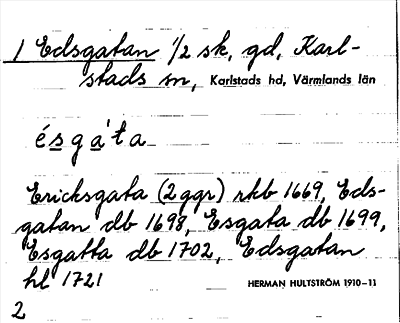 1 Edsgatan 1/2 sk, gd, Karl-
stads sn, Karlstads hd, Värmlands län
ésgàta
Ericksgata (2 ggr) rkb 1669, Eds-
gatan db 1698, Esgata db 1699,
Esgatta db 1702, Edsgatan
hl 1721
HERMAN HULTSTRÖM 1910-11
2